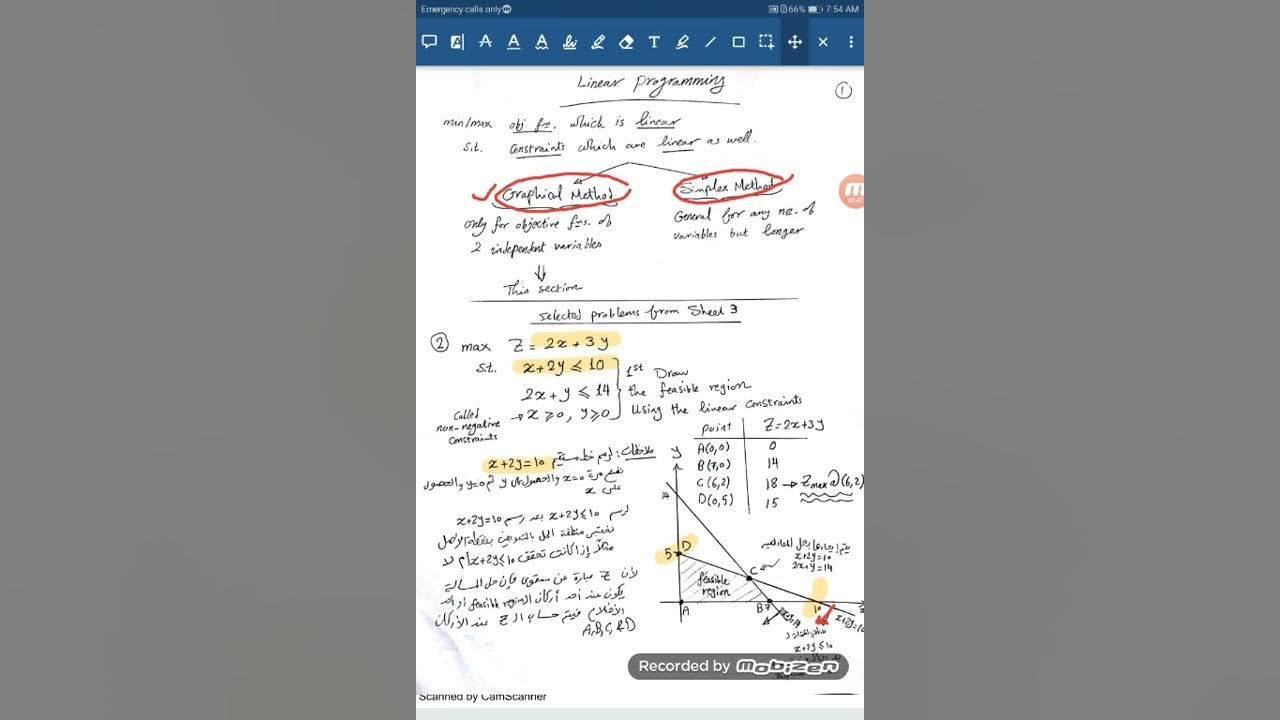 Emergency calls only
66% 7:54 AM
Linear Programming
1
min/max obj fn. which is linear
s.t. constraints which are linear as well.
Graphical Method
Simplex Method
only for objective fns. of
2 independent variables
General for any no. of
variables but longer
This section
selected problems from Sheet 3
2 max Z = 2x + 3y
s.t. x + 2y ⩽ 10
2x + y ⩽ 14
Called
non-negative
constraints
→ x ⩾ 0, y ⩾ 0
1st Draw
the feasible region
Using the linear constraints
Point Z=2x+3y
A(0,0) 0
B(7,0) 14
C(6,2) 18 → Zmax@(6,2)
D(0,5) 15
ملاحظات: لرسم خط مستقيم x+2y=10
نضع مرة x=0 والحصول على y ثم y=0 والحصول
على x
لرسم x+2y⩽10 بعد رسم x+2y=10
نختبر منطقة الحل بالتعويض بنقطة الأصل
مثلاً إذا كانت تحقق x+2y⩽10 أم لا
لأن Z عبارة عن مستوى فإن حل المسألة
يكون عند أحد أركان الـ feasible region أو أحد
الأضلاع فيتم حساب الـ Z عند الأركان
A,B,C &D
y
14
5 D
C
feasible
region
A
B 7
10
x
2x+y=14
x+2y=10
يتم إيجادها بحل المعادلتين
x+2y=10
2x+y=14
x+2y⩽10
Recorded by Mobizen
Scanned by CamScanner
M
00:47